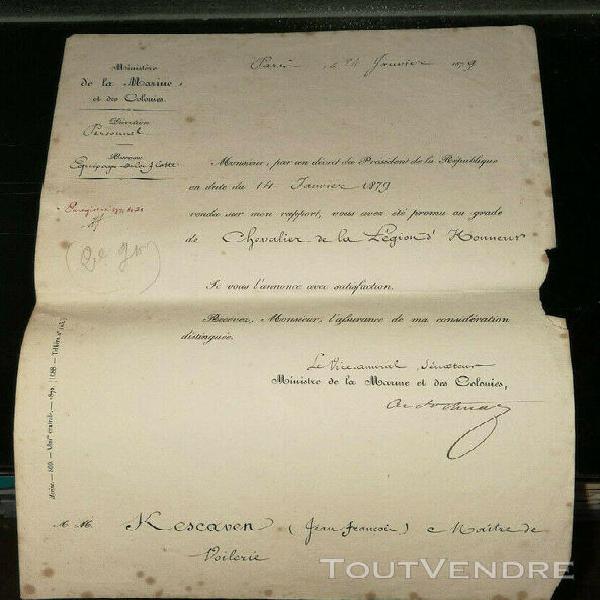 Ministère
de la Marine
et des Colonies.
Direction
Personnel
Bureau
Equipages de la flotte
Paris, le 24 Janvier 1879
Monsieur, par un décret du Président de la République
en date du 14 Janvier 1879
rendu sur mon rapport, vous avez été promu au grade
de Chevalier de la Légion d'Honneur
Je vous l'annonce avec satisfaction.
Recevez, Monsieur, l'assurance de ma considération
distinguée.
Le Vice-amiral, Sénateur
Ministre de la Marine et des Colonies,
M. Kescaven (Jean François) Maître de
Voilerie
TOUTVENDRE